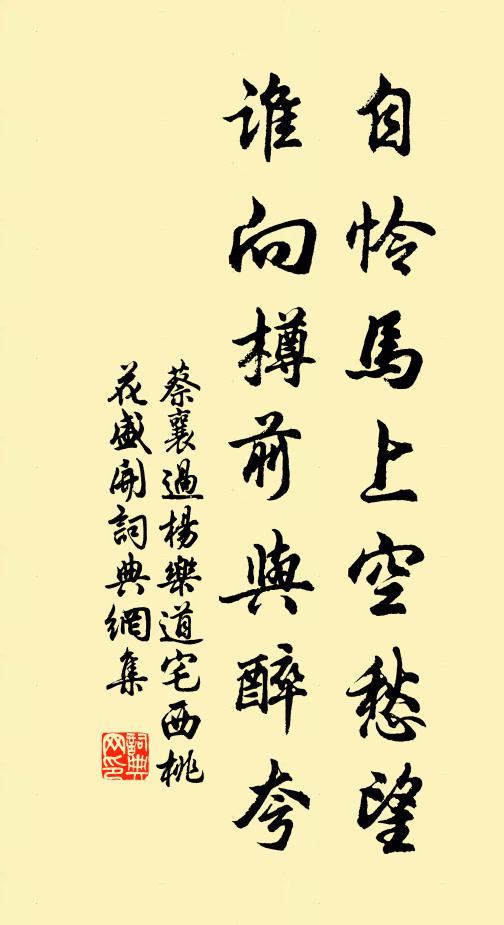 自怜馬上空愁望
誰向樽前與醉夸
蔡襄過楊樂道宅西桃
花盛開詞典網集
詞典
网印